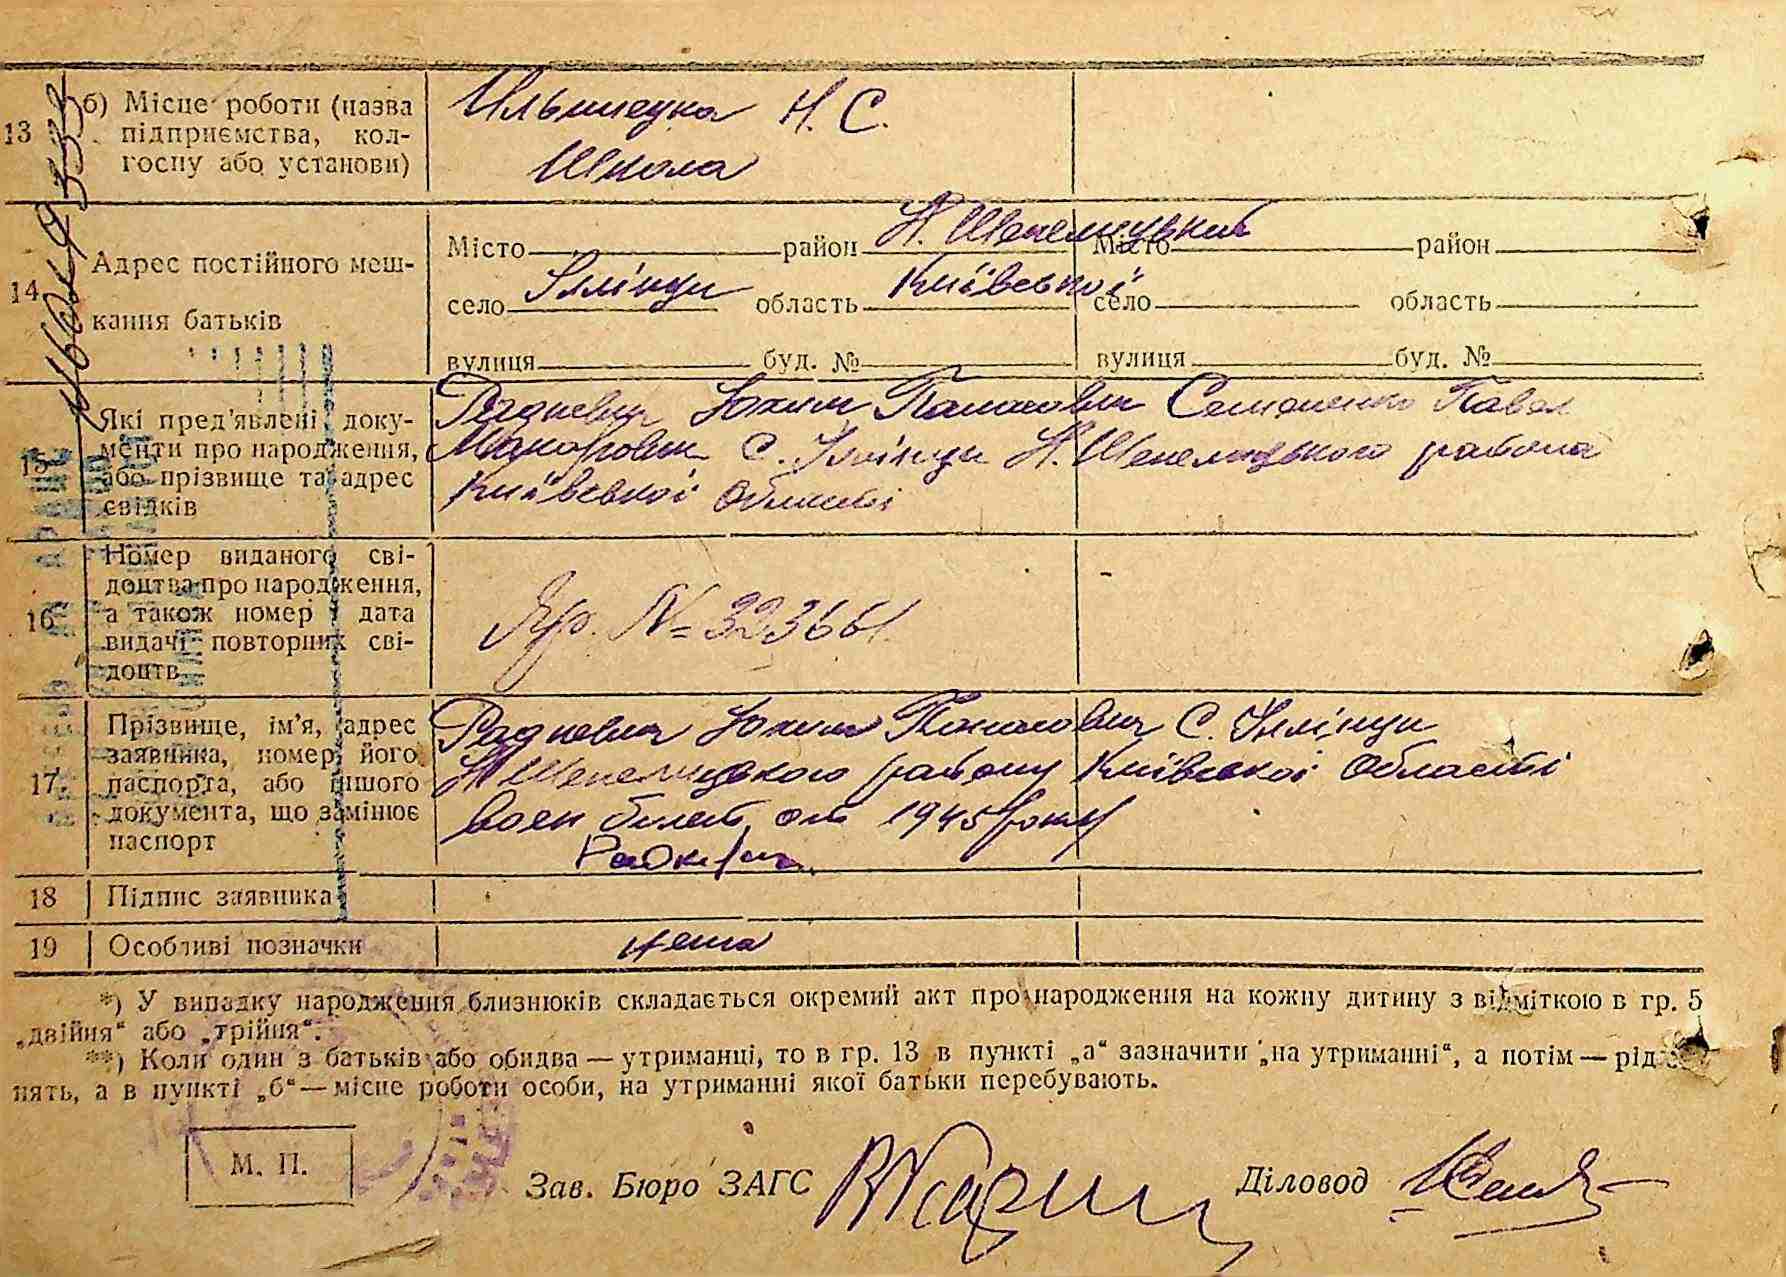 13 б) Місце роботи (назва
підприємства, кол-
госпу або установи)
Ильинецка Н. С.
Школа
14 Адрес постійного меш-
кання батьків
Місто район Н. Шепелицький Місто район
село Іллінци область Київської село область
вулиця буд. № вулиця буд. №
15 Які пред'явлені доку-
менти про народження,
або прізвище та адрес
свідків
Радкевич Юхим Панасович Семоненко Павел
Макарович С. Іллінци Н. Шепелицького района
Київської Області
16 Номер виданого сві-
доцтва про народження,
а також номер і дата
видачі повторних сві-
доцтв
№ 323661
17. Прізвище, ім'я, адрес
заявника, номер його
паспорта, або іншого
документа, що замінює
паспорт
Радкевич Юхим Панасович С. Іллінци
Н Шепелицького району Київської Області
Воен билет от 1945 року
Радкевич
18 Підпис заявника
19 Особливі позначки нема
*) У випадку народження близнюків складається окремий акт про народження на кожну дитину з відміткою в гр. 5
„двійня“ або „трійня“.
**) Коли один з батьків або обидва — утриманці, то в гр. 13 в пункті „а“ зазначити „на утриманні“, а потім — рід за-
нять, а в пункті „б“ — місце роботи особи, на утриманні якої батьки перебувають.
М. П.
Зав. Бюро ЗАГС
Діловод